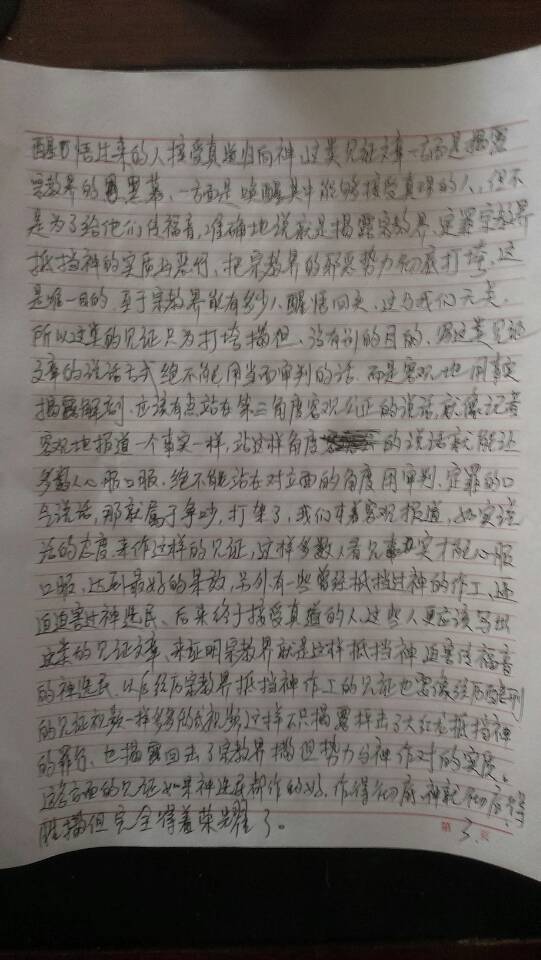 醒悟过来的人接受真道归向神,这类见证文章一方面是揭露
宗教界的黑幕,一方面是唤醒其中能够接受真理的人,但不
是为了给他们传福音,准确地说就是揭露宗教界、定罪宗教界
抵挡神的实质与恶行,把宗教界的邪恶势力彻底打垮,这
是唯一目的,至于宗教界能有多少人醒悟回头,这与我们无关,
所以这类的见证只为打垮撒但,没有别的目的,写这类见证
文章的说话方式绝不能用当面审判的话,而是客观地用事实
揭露解剖,应该有点站在第三角度客观公正的说话,就像记者
客观地报道一个事实一样,站这样角度的说话就能让
多数人心服口服,绝不能站在对立面的角度用审判、定罪的口
气说话,那就属于争吵,打架了,我们本着客观报道,如实说
话的态度来作这样的见证,这样多数人看见事实才能心服
口服,达到最好的果效,另外有一些曾经抵挡过神的作工、还
迫害过神选民、后来终于接受真道的人,这些人更应该写出
这类的见证文章,来证明宗教界就是这样抵挡神迫害传福音
的神选民,以后经历宗教界抵挡神作工的见证也要像经历酷刑
的见证视频一样多多的式视频,这样不只揭露抨击了大红龙抵挡神
的罪行,也揭露回击了宗教界撒但势力与神作对的实质。
这方面的见证如果神选民都作的好,作得彻底,神就彻底得
胜撒但完全得着荣耀了。
第 3 页